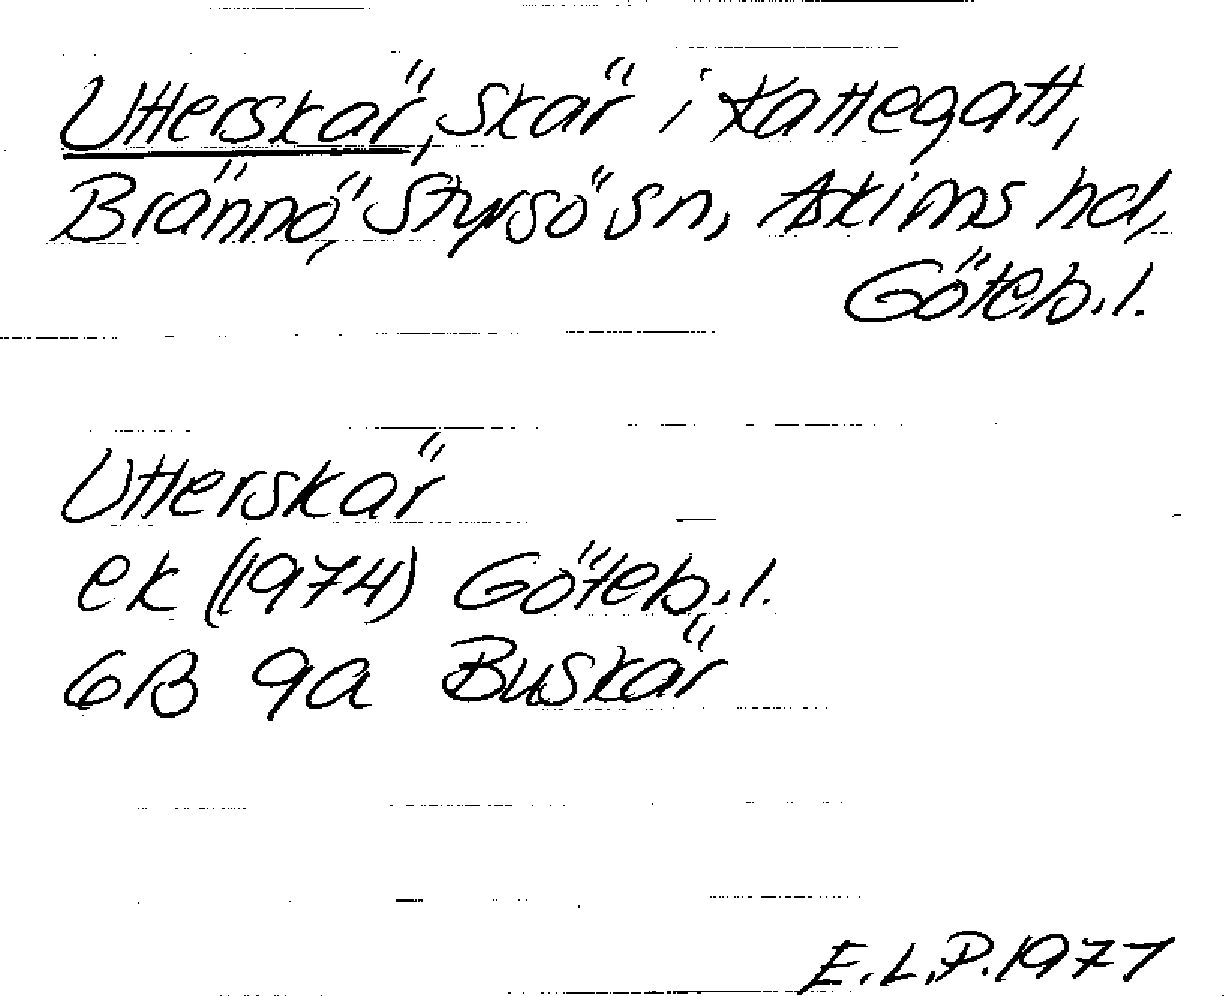 Utterskär, skär i Kattegatt,
Brännö, Styrsö sn, Askims hd,
Göteb.l.
Utterskär
ek (1974) Göteb.l.
6B 9a Buskär
E.L.P. 1977